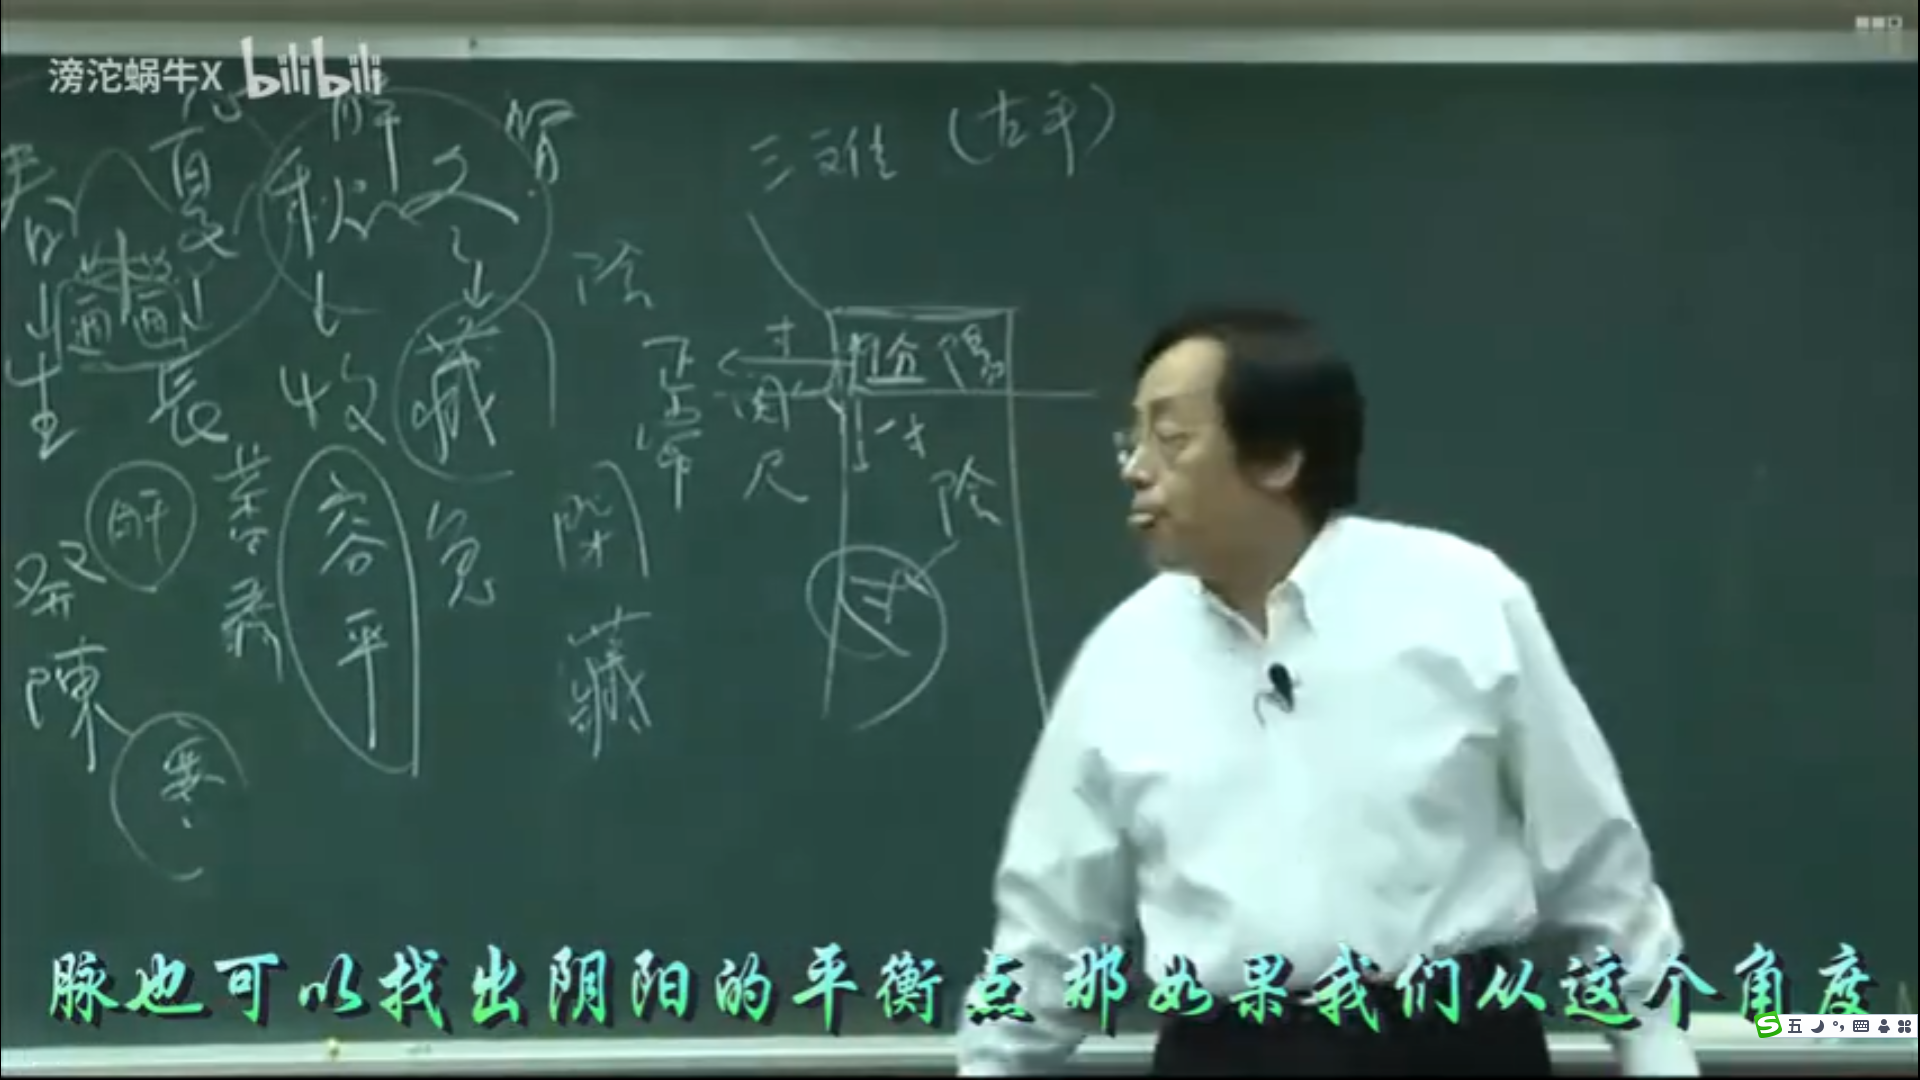 滂沱蜗牛X bilibili
心 解 腎
春 夏 秋 冬
三 (右手)
生 長 收 藏
陰
寸 陰 陽
正 関 一寸
常 尺 陰
肝 蕃 容 免 閉
發 秀 平 藏
陳
寒
脉也可以找出阴阳的平衡点 那如果我们从这个角度
五